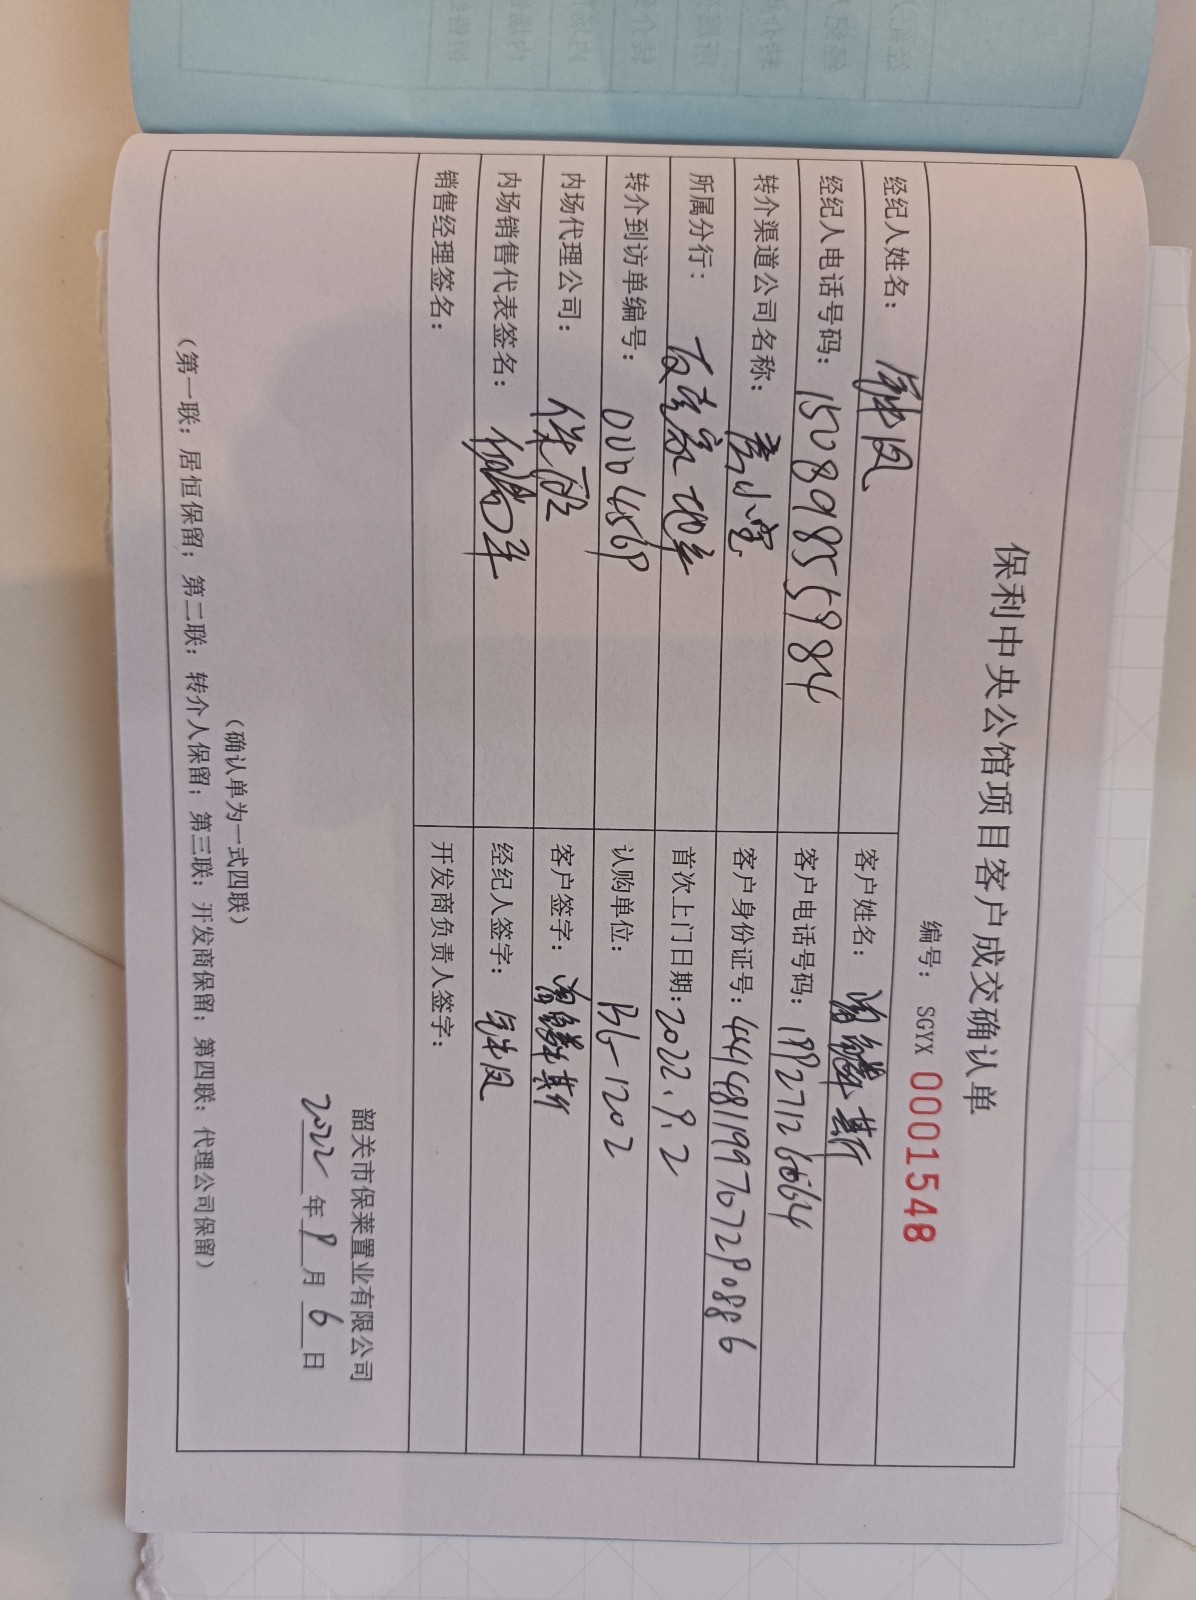 保利中央公馆项目客户成交确认单
编号: SGYX 0001548
经纪人姓名: 凤
客户姓名: 斯
经纪人电话号码: 15089855984
客户电话号码:
转介渠道公司名称: 小宝
客户身份证号: 441481199707280886
所属分行: 家地产
首次上门日期: 2022.9.2
转介到访单编号:
认购单位: B6-1202
内场代理公司: 保
客户签字: 斯
内场销售代表签名:
经纪人签字: 凤
销售经理签名:
开发商负责人签字:
韶关市保莱置业有限公司
2022年9月6日
(确认单为一式四联)
(第一联: 居恒保留; 第二联: 转介人保留; 第三联: 开发商保留; 第四联: 代理公司保留)